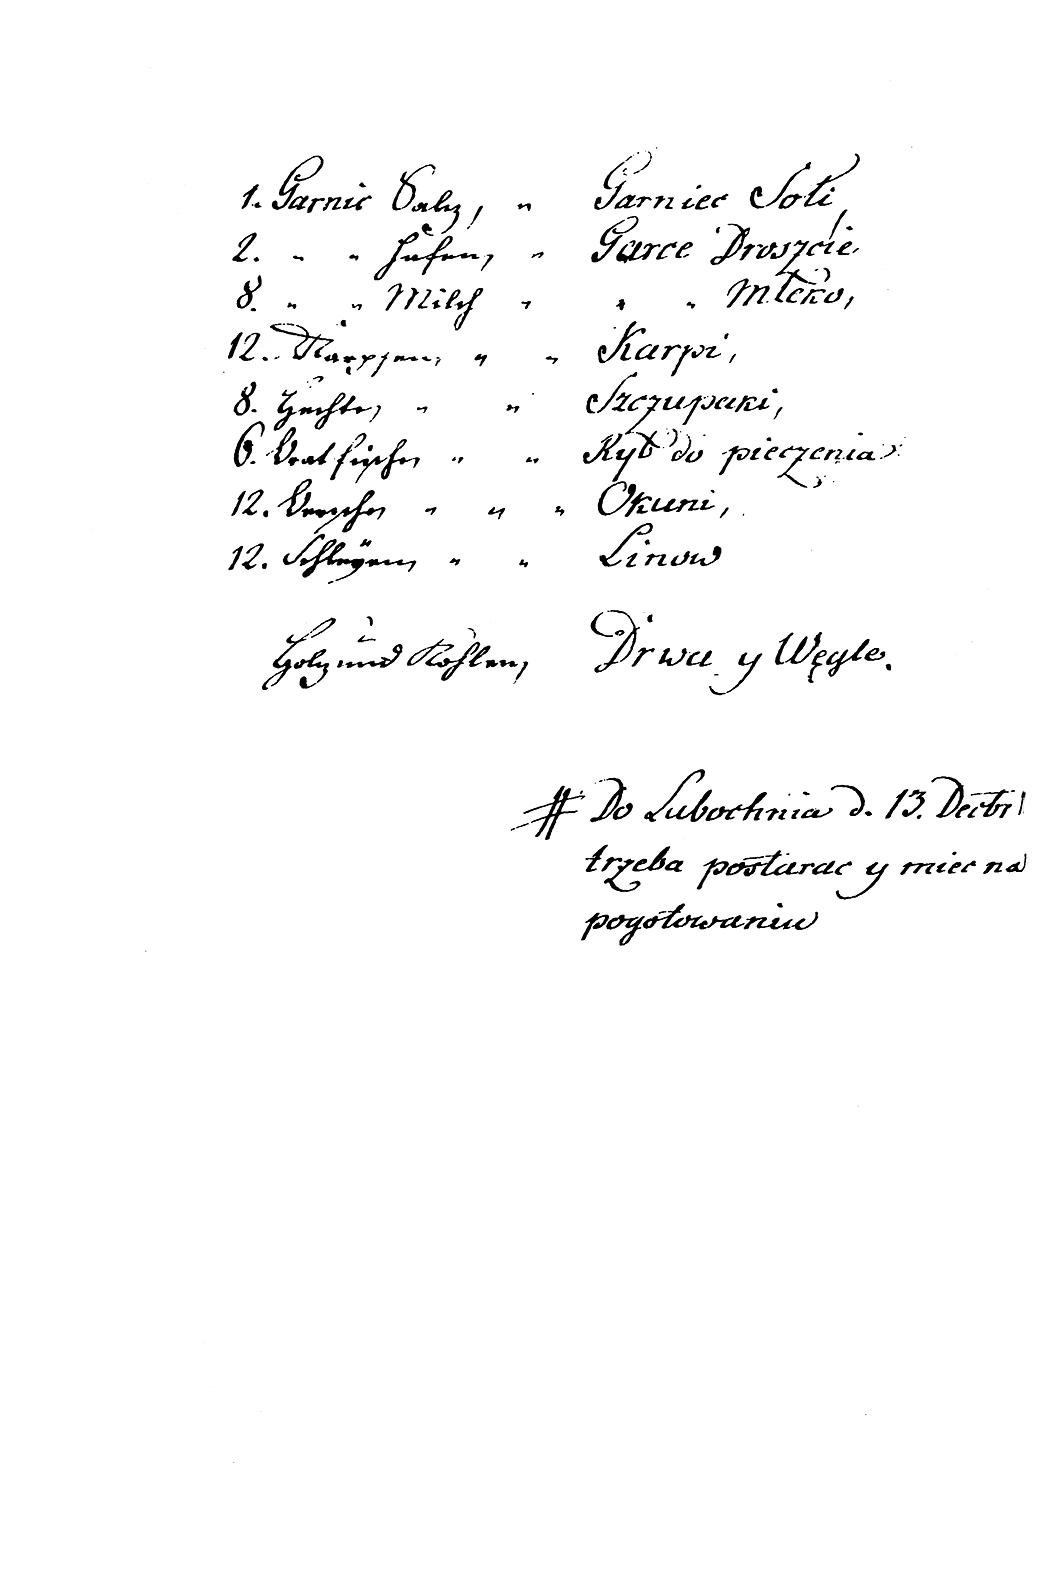 1. Garnic Salz, " Garniec Soli,
2. " " Häfen, " Garce Droszcie
8. " " Milch " " " Mleko,
12. Karpfen, " " Karpi,
8. Hechte, " " Szczupaki,
6. Bratfische, " " Ryb do pieczenia
12. Bersche, " " " Okuni,
12. Schleÿen, " " Linow
Holz und Kohlen, Drwa y Węgle.
# Do Lubochnia d. 13. Decbr
trzeba postarac y miec na
pogotowaniu